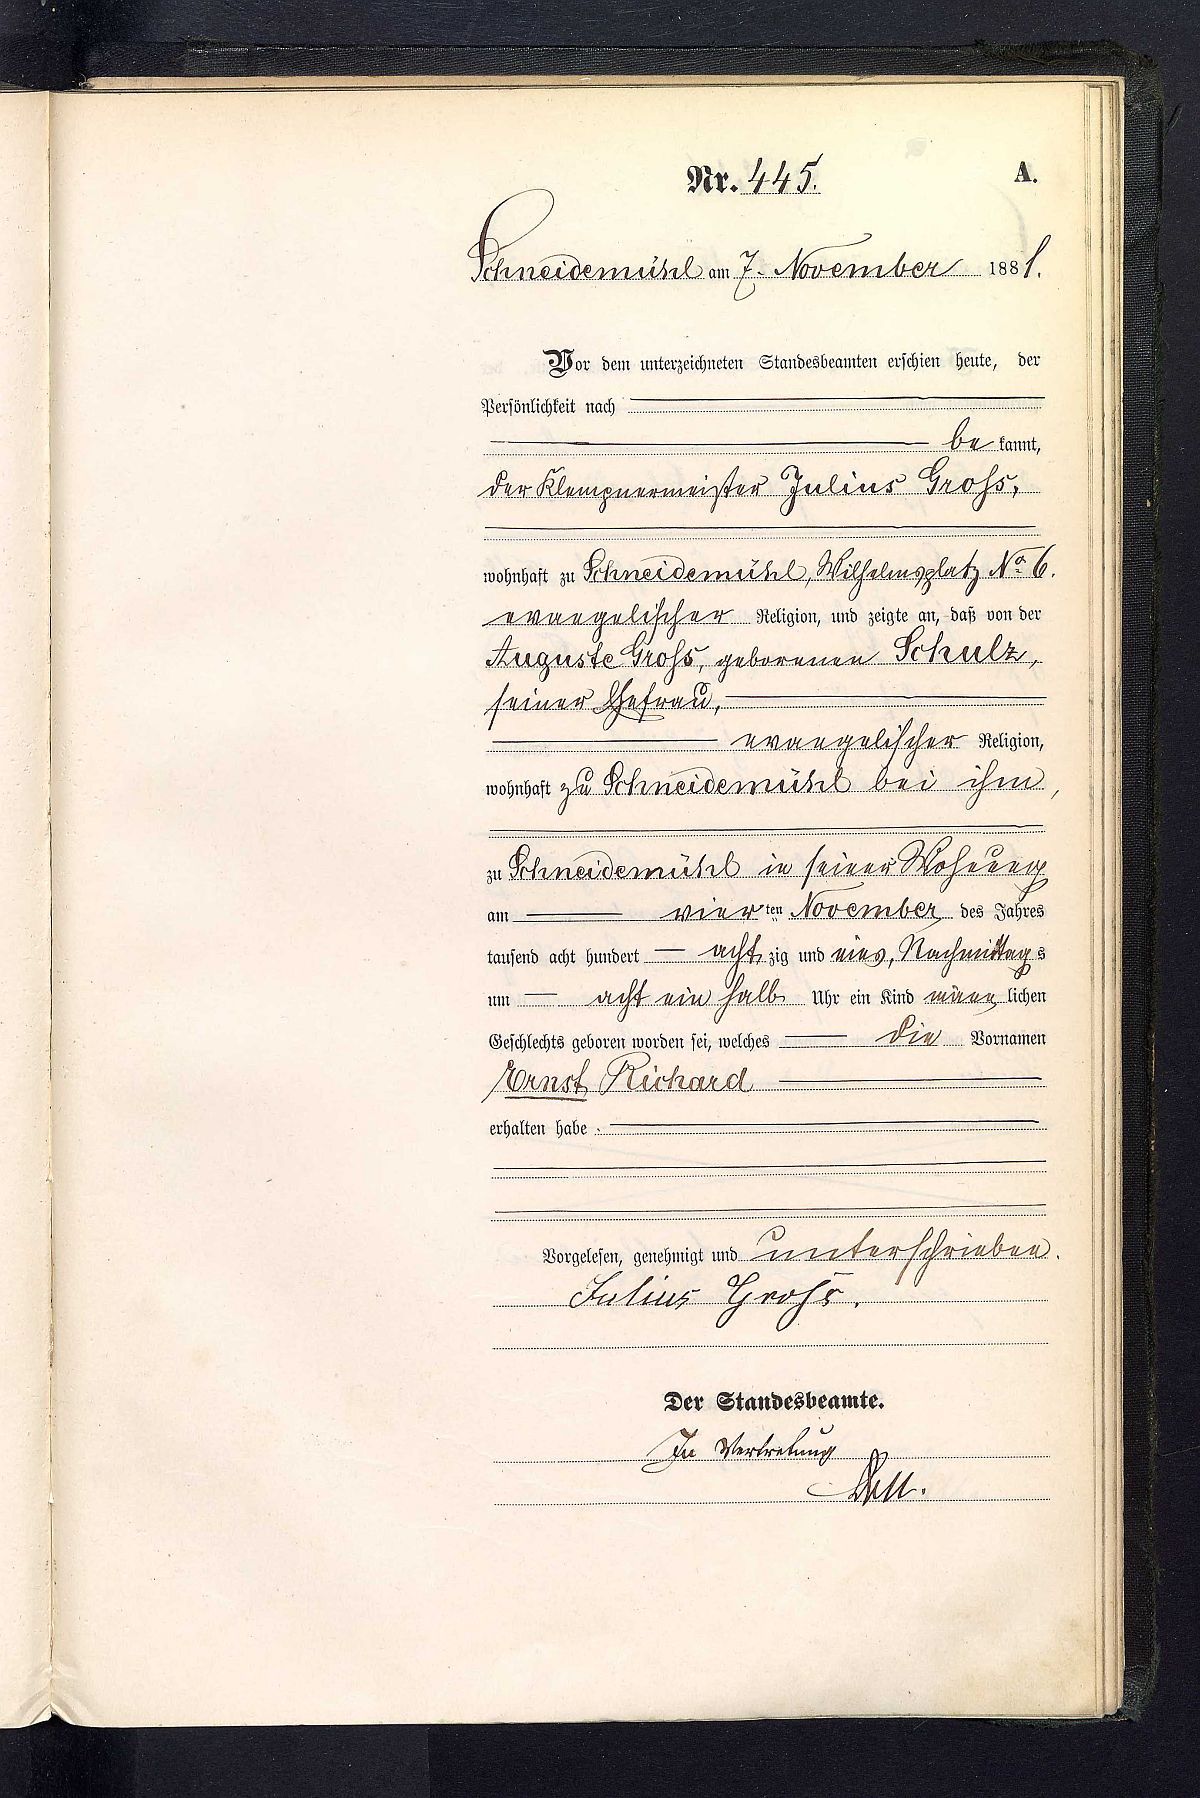 Nr. 445.
A.
Schneidemühl am 7. November 1881.
Vor dem unterzeichneten Standesbeamten erschien heute, der
Persönlichkeit nach
be kannt,
der Klempnermeister Julius Groß,
wohnhaft zu Schneidemühl, Wilhelmsplatz No 6.
evangelischer Religion, und zeigte an, daß von der
Auguste Groß, geborenen Schulz,
seiner Ehefrau,
evangelischer Religion,
wohnhaft zu Schneidemühl bei ihm,
zu Schneidemühl in seiner Wohnung
am vier ten November des Jahres
tausend acht hundert acht zig und eins, Nachmittag s
um acht ein halb Uhr ein Kind männ lichen
Geschlechts geboren worden sei, welches die Vornamen
Ernst Richard
erhalten habe.
Vorgelesen, genehmigt und unterschrieben.
Julius Groß.
Der Standesbeamte.
In Vertretung